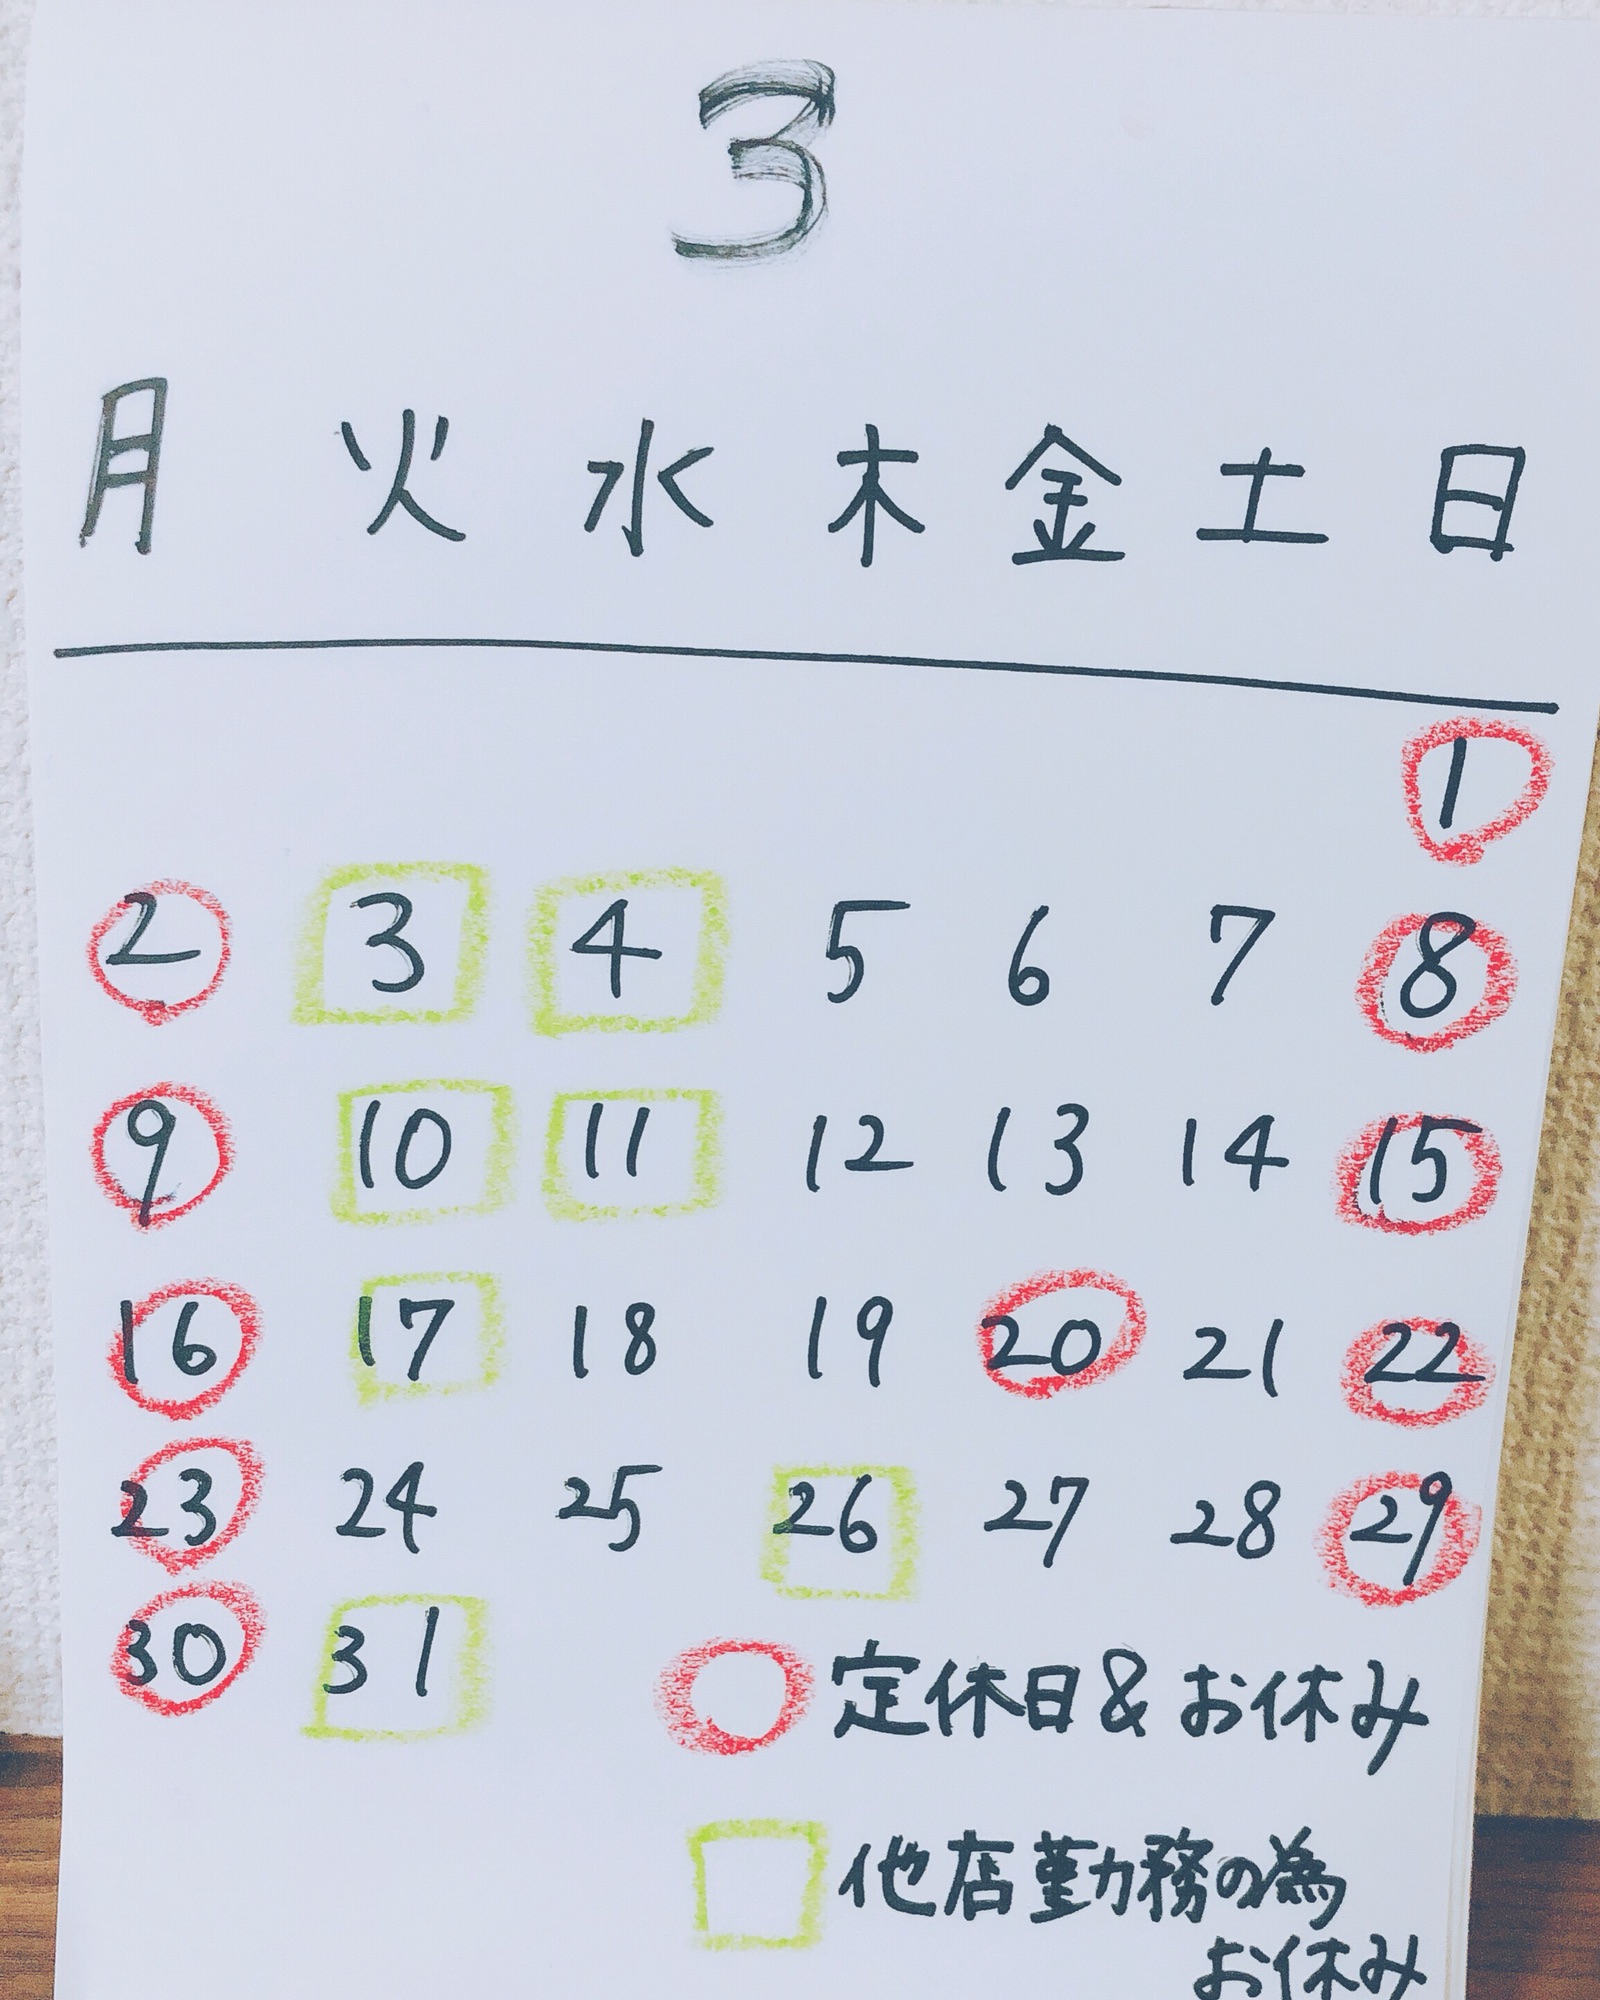 3
月 火 水 木 金 土 日
1
2 3 4 5 6 7 8
9 10 11 12 13 14 15
16 17 18 19 20 21 22
23 24 25 26 27 28 29
30 31
定休日&お休み
他店勤務の為
お休み